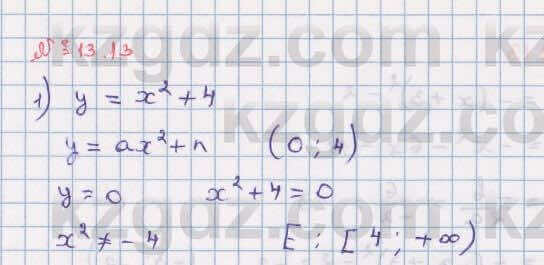 № 13.13
1) y = x² + 4
y = ax² + n (0 ; 4)
y = 0 x² + 4 = 0
x² ≠ - 4 E : [ 4 ; +∞)
kzgdz.com
kzgdz.com